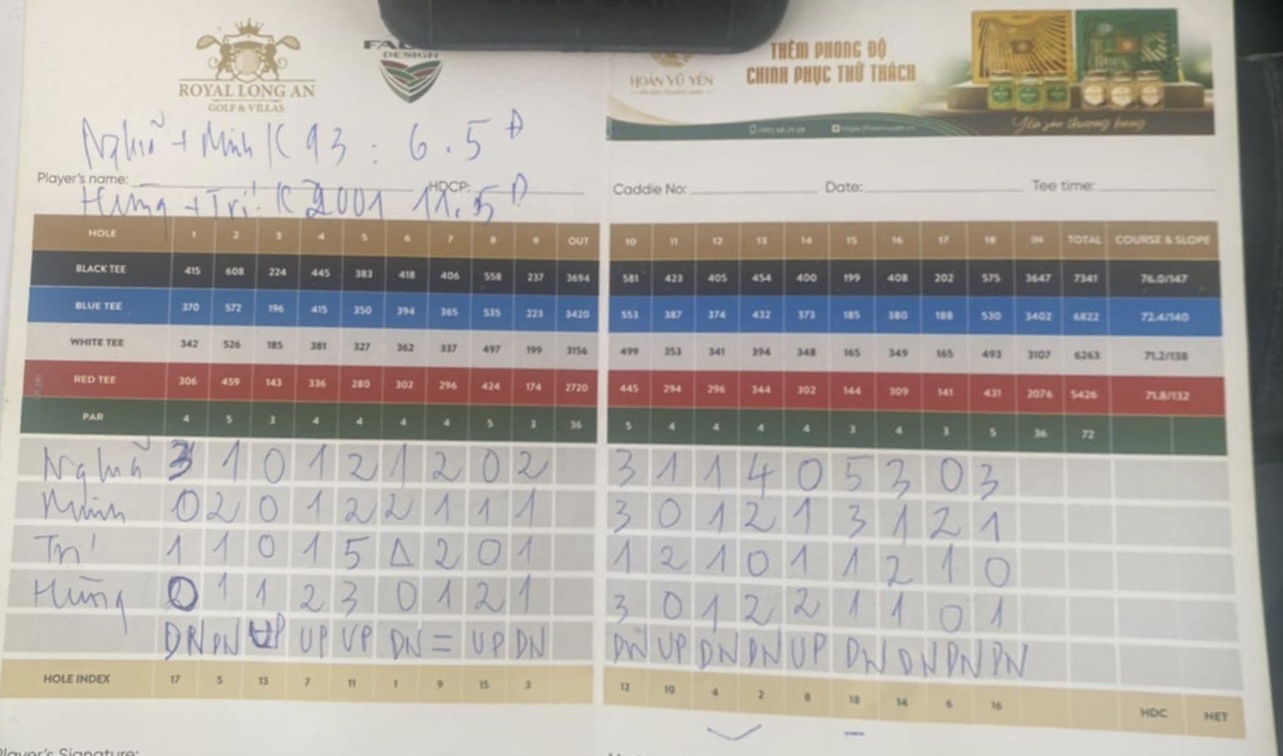 ROYAL LONG AN
GOLF & VILLAS
DESIGN
HOÀN VŨ YẾN
THÊM PHONG ĐỘ
CHINH PHỤC THỬ THÁCH
Yến sào thượng hạng
+ Minh K 93 : 6.5 Đ
Player's name: HDCP: Caddie No: Date: Tee time:
Hùng + Trí: K 2001 11.5 Đ
HOLE 1 2 3 4 5 6 7 8 9 OUT 10 11 12 13 14 15 16 17 18 IN TOTAL COURSE & SLOPE
BLACK TEE 415 608 224 445 383 418 406 558 237 3694 581 423 405 454 400 199 408 202 575 3647 7341 76.0/147
BLUE TEE 370 572 196 415 350 394 365 535 223 3420 553 387 374 432 373 185 380 188 530 3402 6822 72.4/140
WHITE TEE 342 526 185 381 327 362 337 497 199 3156 499 353 341 394 348 165 349 165 493 3107 6263 71.2/138
RED TEE 306 459 143 336 280 302 296 424 174 2720 445 294 296 344 302 144 309 141 431 2076 5426 71.8/132
PAR 4 5 3 4 4 4 4 5 3 36 5 4 4 4 4 3 4 3 5 36 72
3 1 0 1 2 1 2 0 2 3 1 1 4 0 5 3 0 3
Minh 0 2 0 1 2 2 1 1 1 3 0 1 2 1 3 1 2 1
Trí 1 1 0 1 5 Δ 2 0 1 1 2 1 0 1 1 2 1 0
Hùng 0 1 1 2 3 0 1 2 1 3 0 1 2 2 1 1 0 1
DN DN UP UP UP DN = UP DN DN UP DN DN UP DN DN DN DN
HOLE INDEX 17 5 13 7 11 1 9 15 3 12 10 4 2 8 18 14 6 16 HDC NET
Player's Signature: